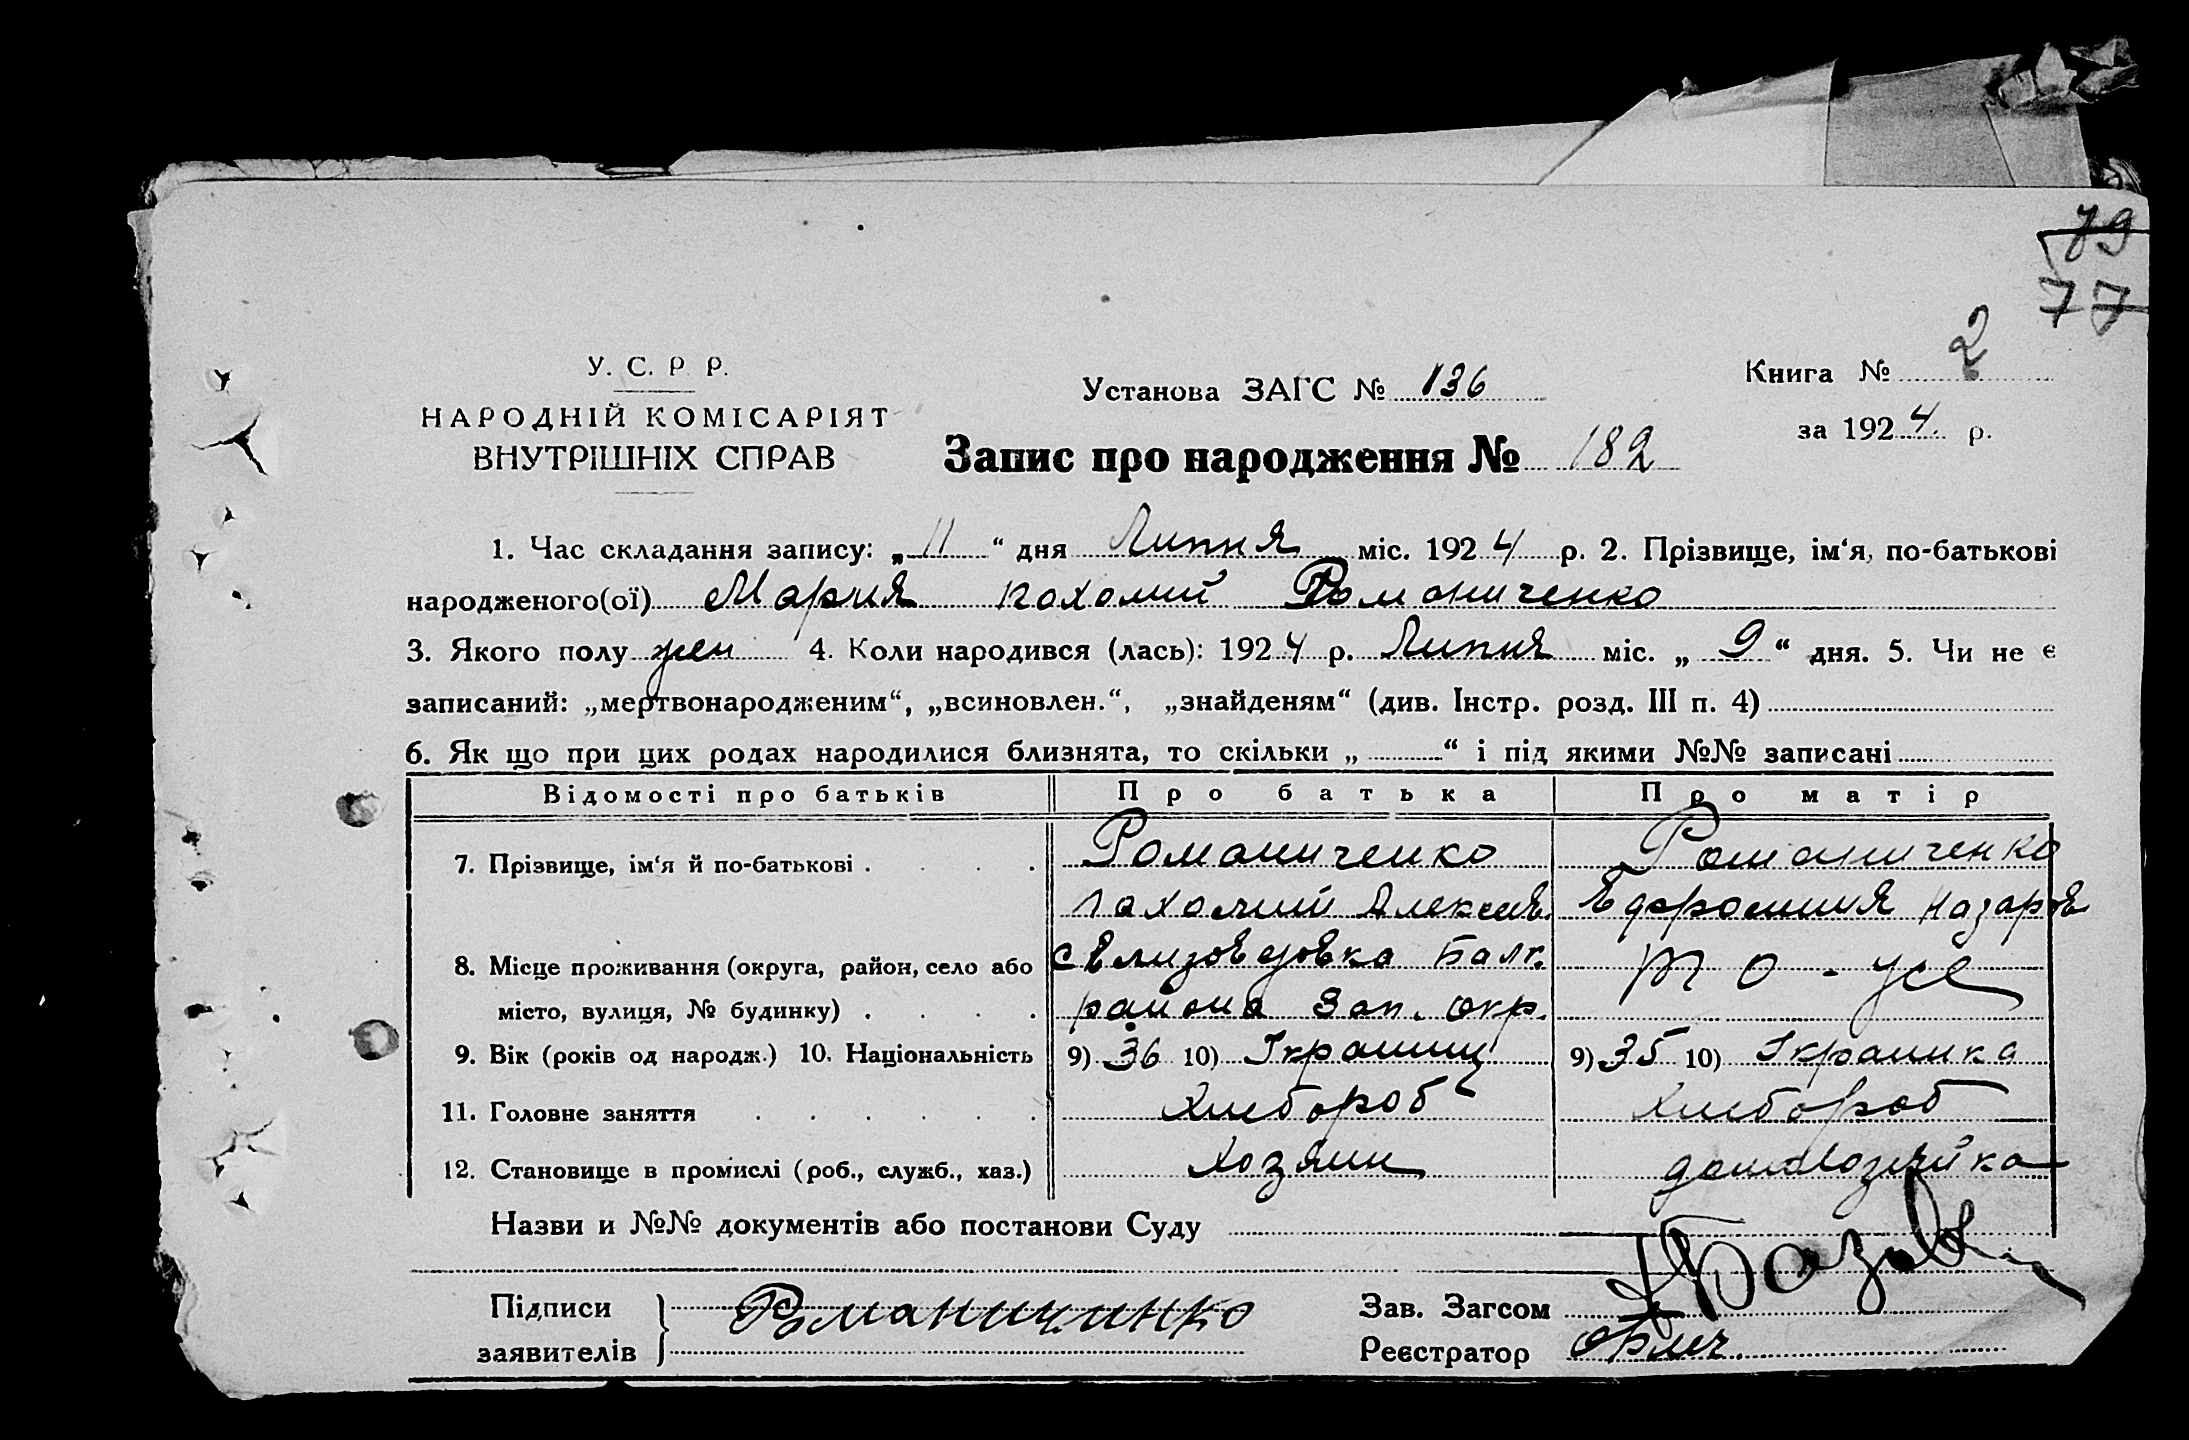 79
77
У. С. Р. Р.
НАРОДНІЙ КОМІСАРІЯТ
ВНУТРІШНІХ СПРАВ
Установа ЗАГС № 136
Книга № 2
за 1924 р.
Запис про народження № 182
1. Час складання запису: „11“ дня Липня міс. 1924 р. 2. Прізвище, ім‘я, по-батькові
народженого(ої) Мария Пахомий Романиченко
3. Якого полу жен 4. Коли народився (лась): 1924 р. Липня міс. „9“ дня. 5. Чи не є
записаний: „мертвонародженим“, „всиновлен.“, „знайденям“ (див. Інстр. розд. III п. 4)
6. Як що при цих родах народилися близнята, то скільки „ “ і під якими №№ записані
Відомості про батьків Про батька Про матір
7. Прізвище, ім‘я й по-батькові . . . . Романиченко Романиченко
Пахомий Алексеев. Ефросиния Назаров
8. Місце проживання (округа, район, село або Балк. то-же
місто, вулиця, № будинку) . . . . района Зап. окр.
9. Вік (років од народж.) 10. Національність 9) 36 10) Украинц 9) 35 10) Украинка
11. Головне заняття . . . . . . Хлебороб Хлебороб
12. Становище в промислі (роб., служб., хаз.) Хозяин домохозяйка
Назви и №№ документів або постанови Суду
Підписи
заявителів } Романиченко
Зав. Загсом
Реєстратор